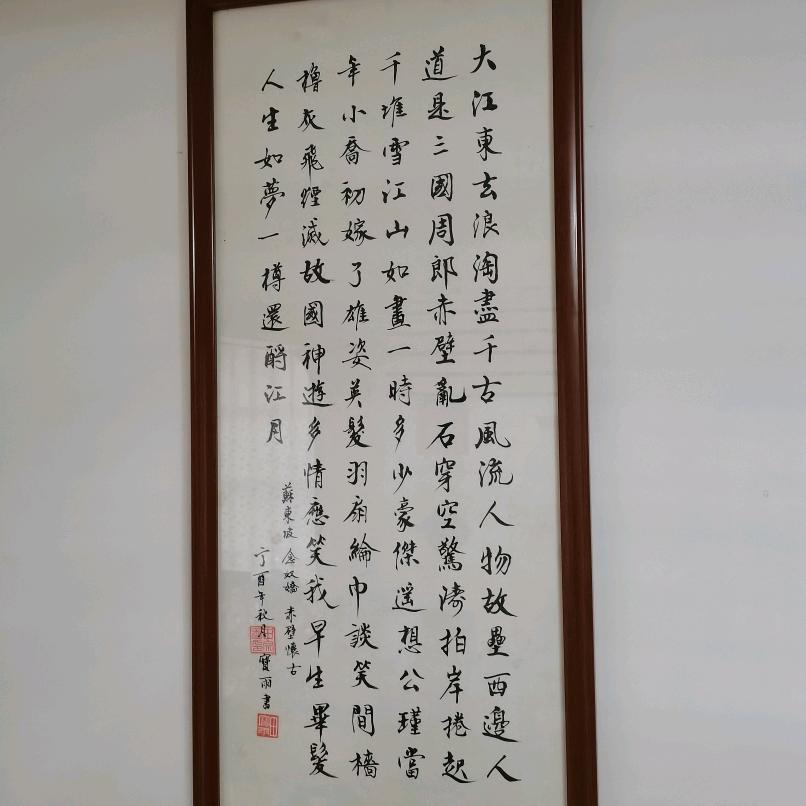 大江東去浪淘盡千古風流人物故壘西邊人
道是三國周郎赤壁亂石穿空驚濤拍岸捲起
千堆雪江山如畫一時多少豪傑遙想公瑾當
年小喬初嫁了雄姿英髮羽扇綸巾談笑間檣
櫓灰飛煙滅故國神遊多情應笑我早生華髮
人生如夢一樽還酹江月
蘇東坡 念奴嬌 赤壁懷古
丁酉年秋月 寶雨書